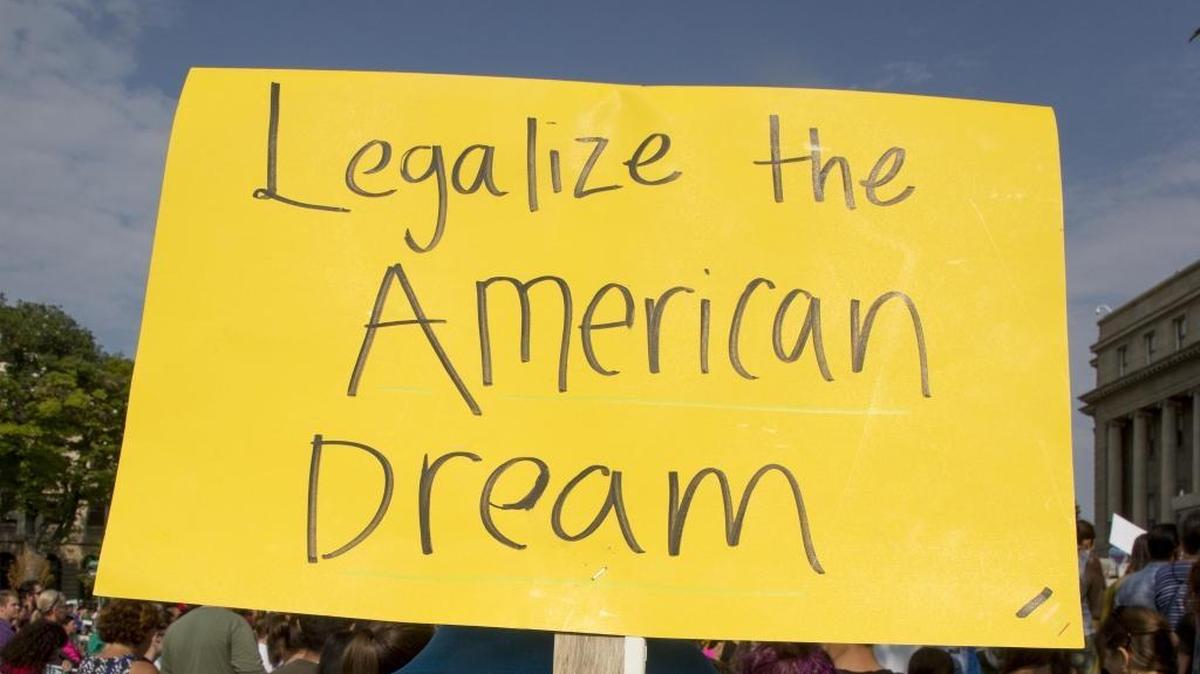 Legalize the
American
Dream